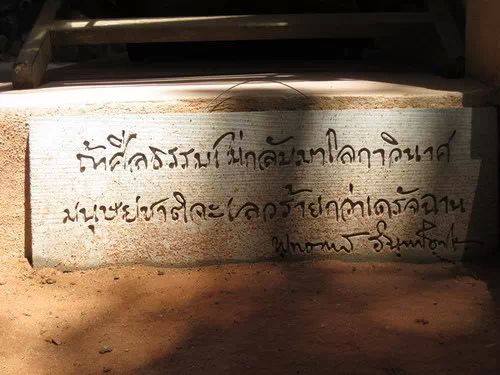 ถ้าศีลธรรมไม่กลับมาโลกาวินาศ
มนุษยชาติจะเลวร้ายกว่าเดรัจฉาน
พุทธทาส อินทปัญโญ